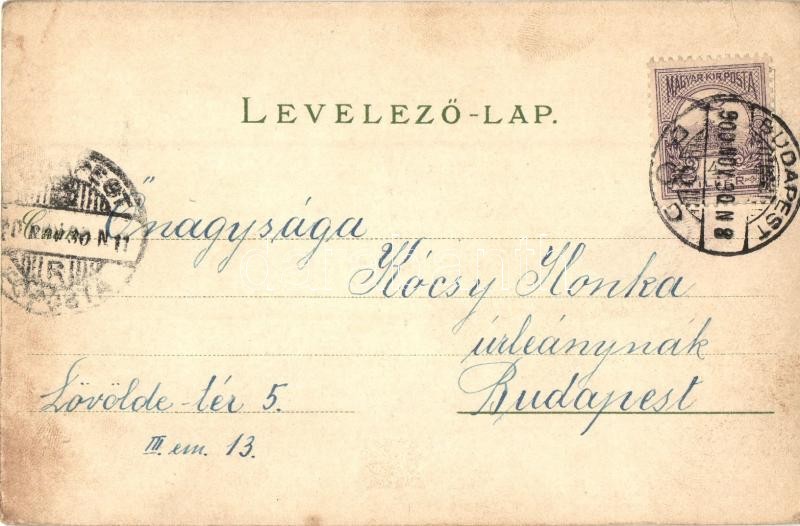 LEVELEZŐ-LAP.
MAGYAR KIR. POSTA
BUDAPEST
Őnagysága
Kócsy Ilonka
úrleánynák
Budapest
Lövölde-tér 5.
III. em. 13.